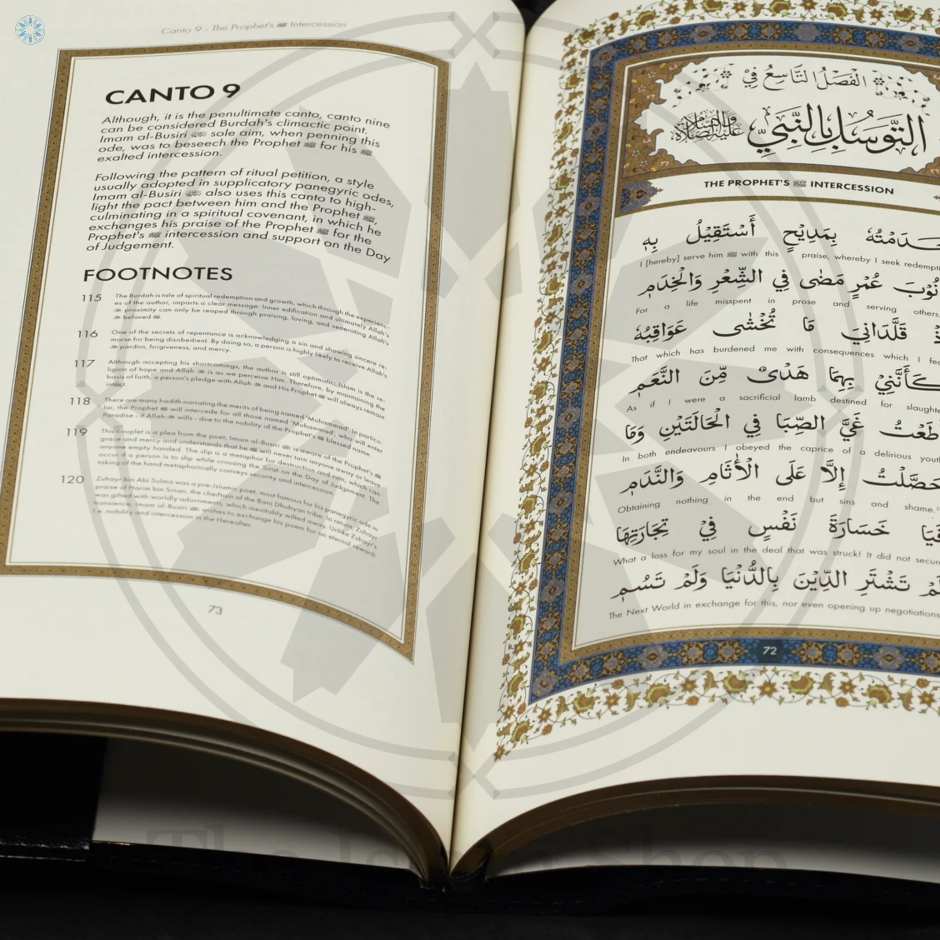 Canto 9 - The Prophet's ﷺ Intercession
CANTO 9
Although, it is the penultimate canto, canto nine
can be considered Burdah's climactic point.
Imam al-Busiri sole aim, when penning this
ode, was to beseech the Prophet ﷺ for his ﷺ
exalted intercession.
Following the pattern of ritual petition, a style
usually adopted in supplicatory panegyric odes,
Imam al-Busiri also uses this canto to high-
light the pact between him and the Prophet ﷺ,
culminating in a spiritual covenant, in which he
exchanges his praise of the Prophet ﷺ for the
Prophet's ﷺ intercession and support on the Day
of Judgement.
FOOTNOTES
115 The Burdah is tale of spiritual redemption and growth, which through the experienc-
es of the author, imparts a clear message: Inner edification and ultimately Allah's
proximity can only be reached through praising, loving, and venerating Allah's
beloved ﷺ.
116 One of the secrets of repentance is acknowledging a sin and showing sincere re-
morse for being disobedient. By doing so, a person is highly likely to receive Allah's
pardon, forgiveness, and mercy.
117 Although accepting his shortcomings, the author is still optimistic; Islam is the re-
ligion of hope and Allah is as we perceive Him. Therefore, by maintaining the
basis of faith, a person's pledge with Allah and His Prophet ﷺ will always remain
intact.
118 There are many hadith narrating the merits of being named 'Muhammad'. In particu-
lar, the Prophet ﷺ will intercede for all those named 'Muhammad', who will enter
Paradise - if Allah wills - due to the nobility of the Prophet's ﷺ blessed name.
119 This couplet is a plea from the poet; Imam al-Busiri is aware of the Prophet's ﷺ
grace and mercy and understands that he ﷺ will never turn anyone away or leave
anyone empty handed. The slip is a metaphor for destruction and ruin, which can
occur if a person is to slip while crossing the Sirat on the Day of Judgement. The
taking of the hand metaphorically conveys security and intercession.
120 Zuhayr ibn Abi Sulma was a pre-Islamic poet, most famous for his panegyric ode in
praise of Harim ibn Sinan, the chieftain of the Banu Dhubyan tribe. In return, Zuhayr
was gifted with worldly adornments, which inevitably wilted away. Unlike Zuhayr's
transience, Imam al-Busiri wishes to exchange his poem for an eternal reward
i.e. nobility and intercession in the Hereafter.
73
الفَصْلُ التَّاسِعُ فِي
التَّوَسُّلِ بِالنَّبِيِّ عَلَيْهِ الصَّلَاةُ وَالسَّلَامُ
THE PROPHET'S ﷺ INTERCESSION
بِمَدِيْحٍ أَسْتَقِيْلُ بِهٖ
I [hereby] serve him ﷺ with this praise, whereby I seek
عُمْرٍ مَضٰى فِي الشِّعْرِ وَالْخِدَمِ
For a life misspent in prose and serving
قَلَّدَانِيَ مَا تُخْشٰى عَوَاقِبُهٗ
That which has burdened me with consequences which I
كَأَنَّنِيْ بِهِمَا هَدْىٌ مِّنَ النَّعَمِ
As if I were a sacrificial lamb destined for
غَيَّ الصِّبَا فِي الْحَالَتَيْنِ وَمَا
In both endeavours I obeyed the caprice of a delirious
حَصَّلْتُ إِلَّا عَلَى الْأٰثَامِ وَالنَّدَمِ
Obtaining nothing in the end but sins and shame
خَسَارَةَ نَفْسٍ فِيْ تِجَارَتِهَا
What a loss for my soul in the deal that was struck! It did not
لَمْ تَشْتَرِ الدِّيْنَ بِالدُّنْيَا وَلَمْ تَسُمِ
The Next World in exchange for this, nor even opening up
72
The Islamic Shop